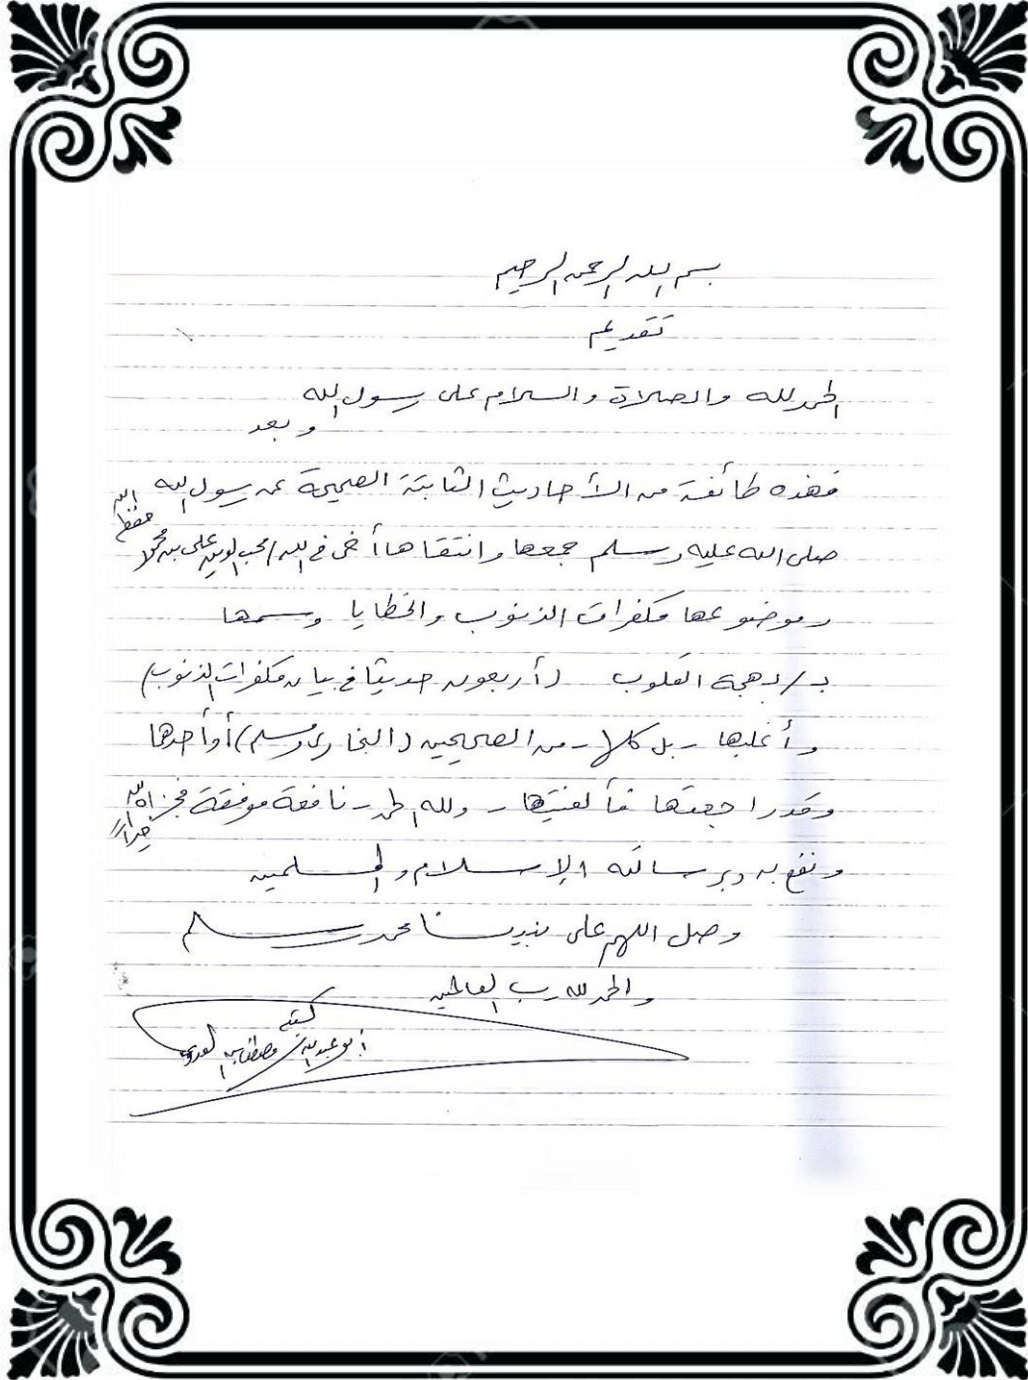 بسم الله الرحمن الرحيم
تقديم
الحمد لله والصلاة والسلام على رسول الله
وبعد
فهذه طائفة من الأحاديث الثابتة الصحيحة عن رسول الله
صلى الله عليه وسلم جمعها وانتقاها أخي في الله / محب الدين علي بن محمود حفظه الله
وموضوعها مكفرات الذنوب والخطايا وسمها
بـ / بهجة القلوب (أربعون حديثا في بيان مكفرات الذنوب)
وأغلبها - بل كلها - من الصحيحين (البخاري ومسلم) أو أحدها
وقد راجعتها فألفيتها - ولله الحمد - نافعة موفقة فجزاه الله خيراً
ونفع به وبرسالته الإسلام والمسلمين
وصل اللهم على نبينا محمد وسلم
والحمد لله رب العالمين
كتبه
أبو عبد الله / مصطفى بن العدوي